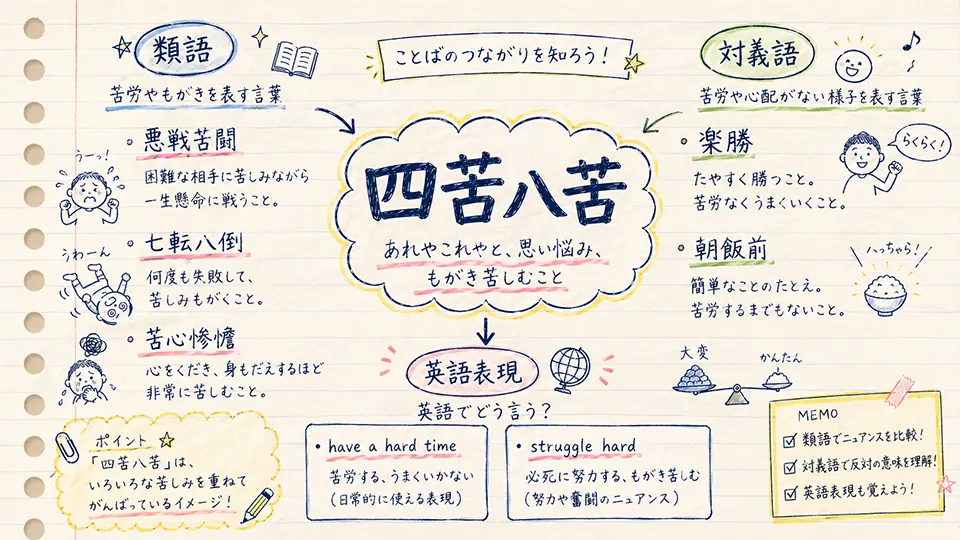 ことばのつながりを知ろう！
四苦八苦
あれやこれやと、思い悩み、
もがき苦しむこと
類語
苦労やもがきを表す言葉
・悪戦苦闘
うーっ！
困難な相手に苦しみながら
一生懸命に戦うこと。
・七転八倒
うわーん
何度も失敗して、
苦しみもがくこと。
・苦心惨憺
心をくだき、身もだえするほど
非常に苦しむこと。
対義語
苦労や心配がない様子を表す言葉
・楽勝
らくらく！
たやすく勝つこと。
苦労なくうまくいくこと。
・朝飯前
簡単なことのたとえ。
苦労するまでもないこと。
ハっちゃら！
大変
かんたん
英語表現
英語でどう言う？
・have a hard time
苦労する、うまくいかない
（日常的に使える表現）
・struggle hard
必死に努力する、もがき苦しむ
（努力や奮闘のニュアンス）
ポイント
「四苦八苦」は、
いろいろな苦しみを重ねて
がんばっているイメージ！
MEMO
類語でニュアンスを比較！
対義語で反対の意味を理解！
英語表現も覚えよう！